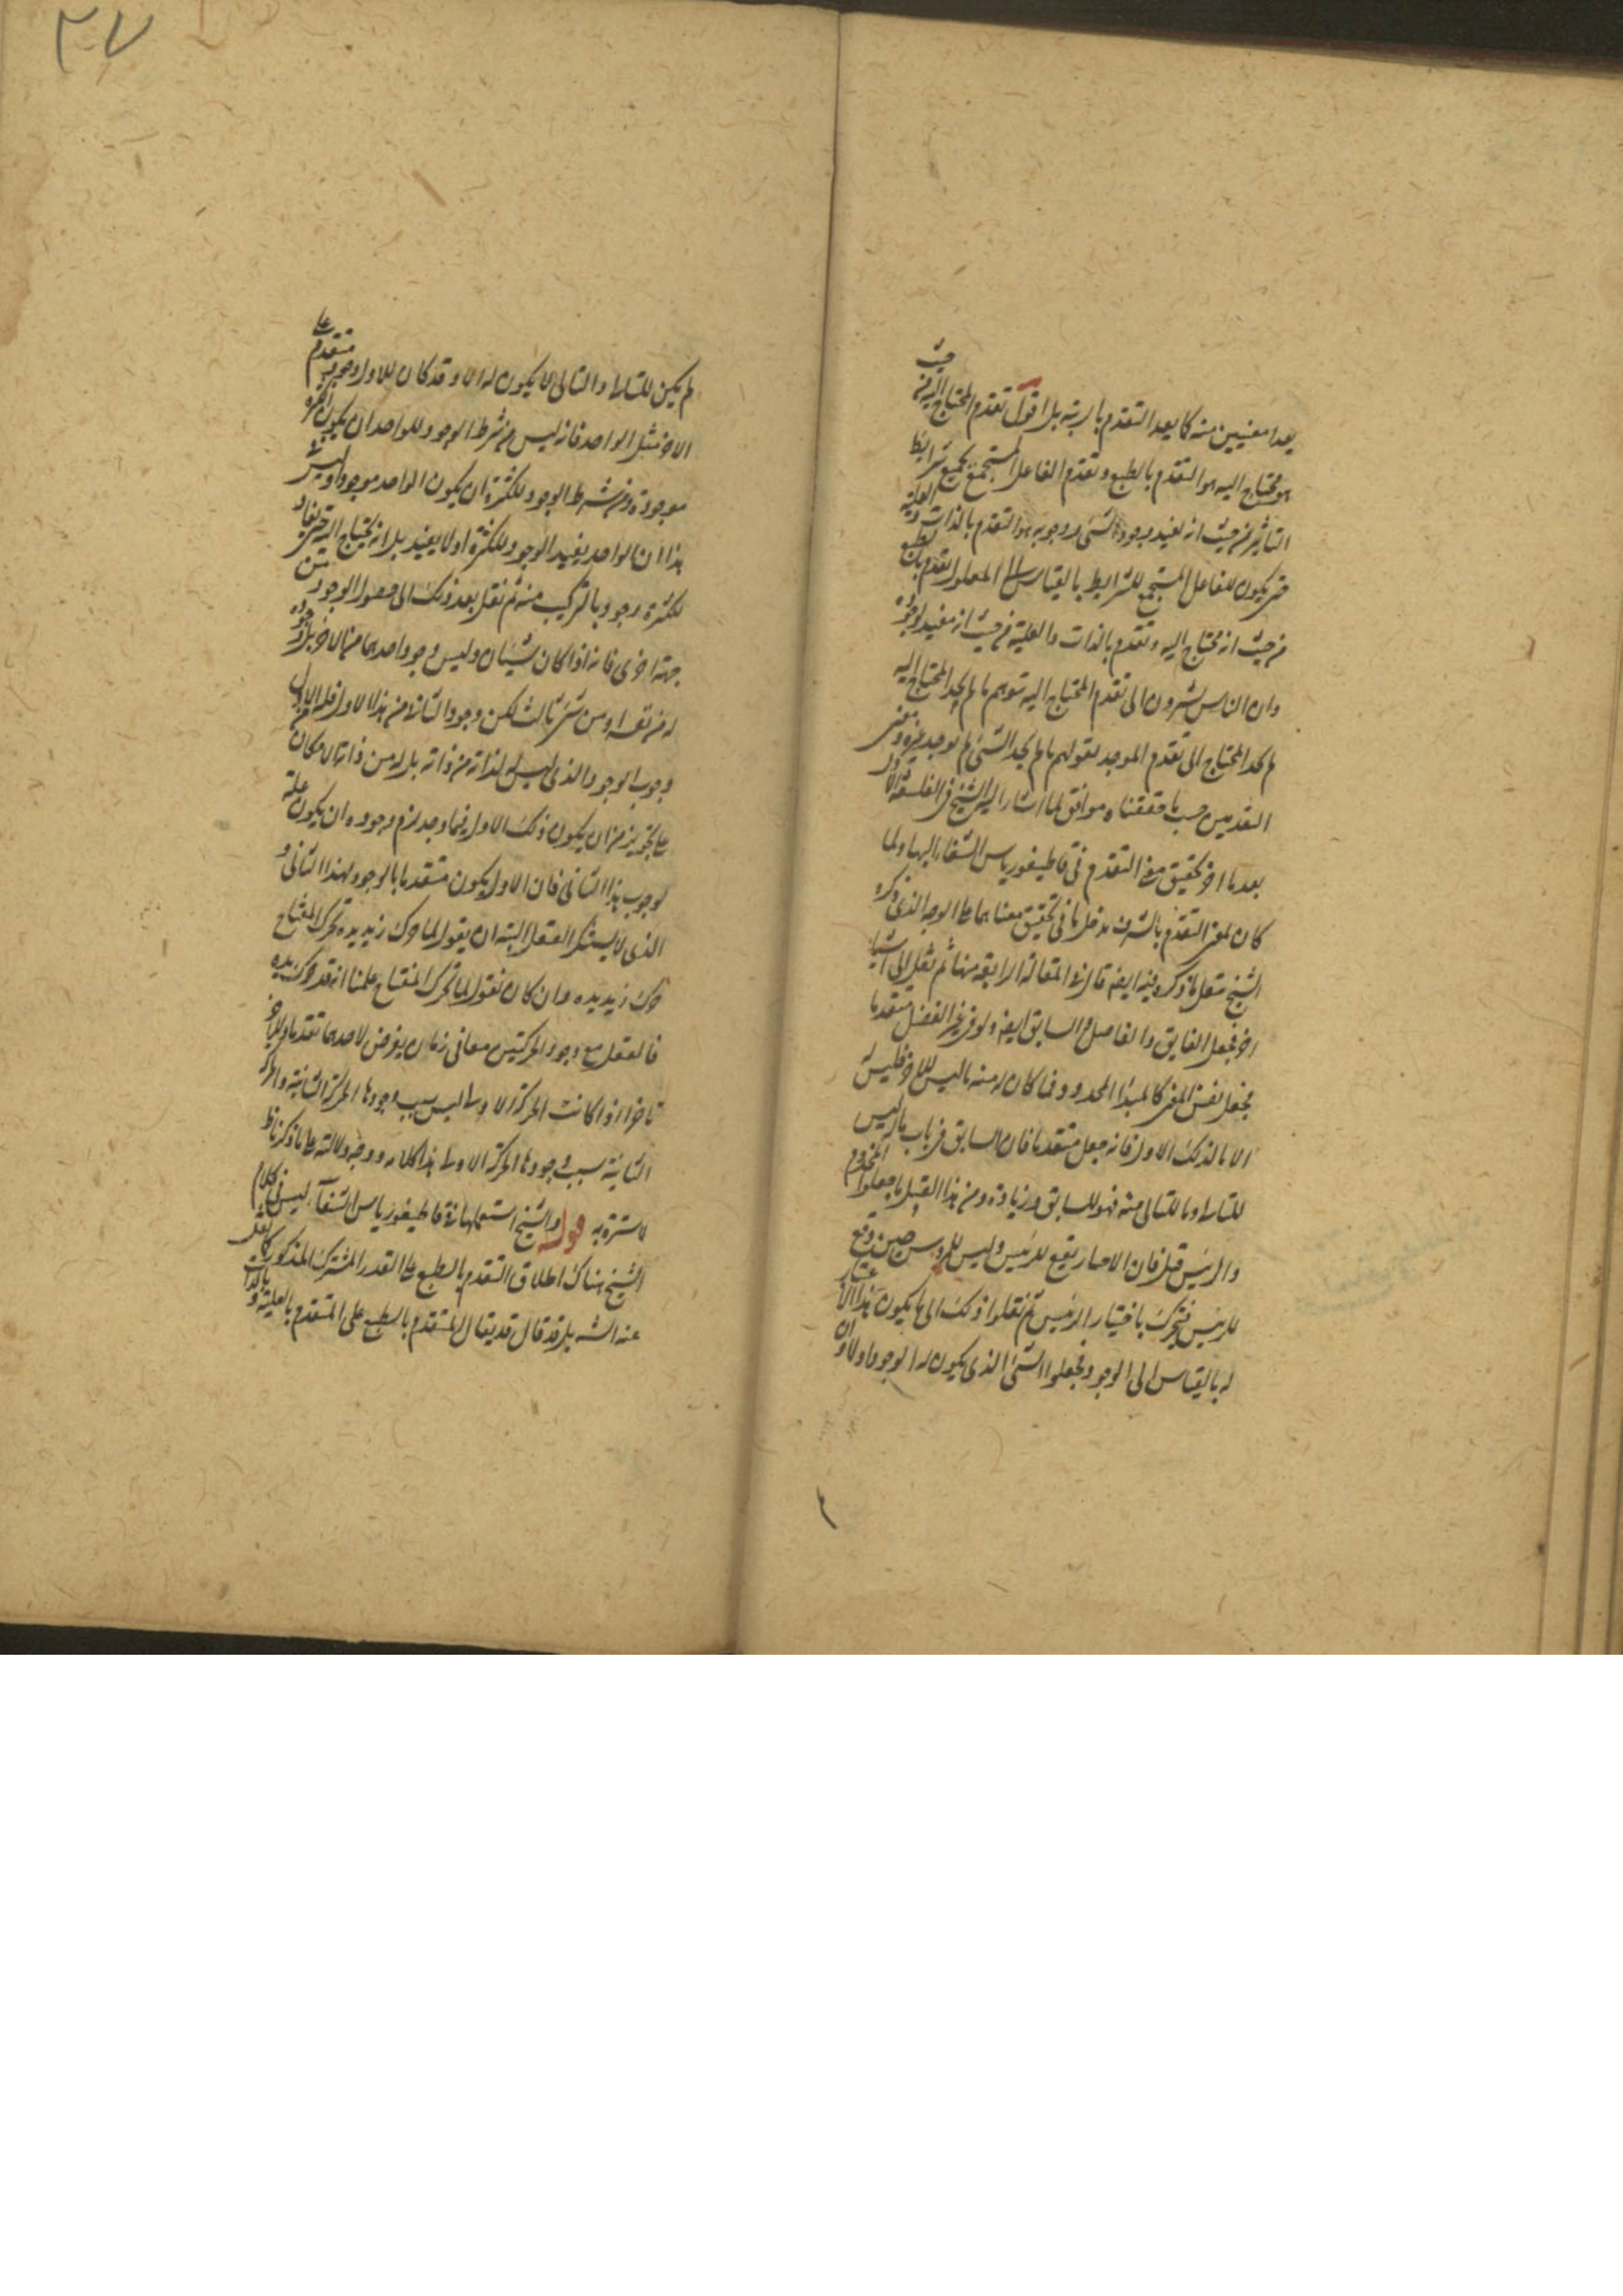 يعدا معنيين منه كما يعد التقدم بالرتبة بل اقول تقدم المحتاج اليه من حيث
هو محتاج اليه هو التقدم بالطبع وتقدم الفاعل المستجمع بجميع شرايط
التاثير من حيث انه يفيد وجود الشئ ووجوبه هو التقدم بالذات والعلية
حتى يكون للفاعل المستجمع للشرايط بالقياس الى المعلول تقدم بالطبع
من حيث انه محتاج اليه وتقدم بالذات والعلية من حيث انه مفيد لوجوده
وان الناس يشيرون الى تقدم المحتاج اليه بقولهم ما لم يوجد المحتاج اليه
لم يوجد المحتاج الى تقدم الموجد بقولهم ما لم يجد الشئ لم يوجد غيره ومعنى
التقدمين حسب ما حققناه موافق لما اشار اليه الشيخ في الفلسفة الاولى
بعد ما اخر تحقيق معنى التقدم في قاطيغورياس الشفاء اليها ولما
كان لمعنى التقدم بالشرف مدخل ما في تحقيق معناهما على الوجه الذي ذكره
الشيخ ننقل ما ذكره فيه ايضا قال في المقالة الرابعة منها ثم نقل الى اشياء
اخر فجعل الفايق والفاضل والسابق ايضا ولو في غير الفضل متقدما
فجعل نفس المعنى كالمبدأ المحدود فما كان له منه ما ليس للاخر فليس له
الا ما لذلك الاول فانه جعل متقدما فان السابق في باب ما له ما ليس
للتالي وما للتالي منه فهو للسابق وزيادة ومن هذا القبيل ما جعلوا المخدوم
والرئيس قبل فان الاختيار يقع للرئيس وليس للمرؤس حين وقع
للرئيس فيتحرك باختيار الرئيس ثم نقلوا ذلك الى ما يكون هذا الاعتبار
له بالقياس الى الوجود فجعلوا الشئ الذي يكون له الوجود اولا وان
لم يكن للتالي والتالي لا يكون له الا وقد كان للاول وجود متقدم على
الاخر مثل الواحد فانه ليس من شرط الوجود للواحد ان يكون الكثرة
موجودة ومن شرط الوجود للكثرة ان يكون الواحد موجودا وليس في
هذا ان الواحد يفيد الوجود للكثرة او لا يفيد بل انه يحتاج اليه حتى يفاد
للكثرة وجود بالتركيب منه ثم نقل بعد ذلك الى حصول الوجود من
جهة اخرى فانه اذا كان شيئان وليس وجود احدهما من الاخر بل وجوده
له من نفسه او من شئ ثالث لكن وجود الثاني من هذا الاول فله من الاول
وجوب الوجود الذي ليس له لذاته من ذاته بل له من ذاته الامكان
على تجويز من ان يكون ذلك الاول فيما وجد لزم وجوده ان يكون علة
لوجوب هذا الثاني فان الاول يكون متقدما بالوجود لهذا الثاني و
الذي لا يستنكر العقل البتة ان يقول لما حرك زيد يده تحرك المفتاح
حرك زيد يده وان كان نقول لما تحرك المفتاح علمنا انه قد حرك يده
فالعقل مع وجود الحركتين معا في زمان يفرض لاحدهما تقدما وللاخر
تاخرا اذا كانت الحركة الاولى ليس سبب وجودها الحركة الثانية والحركة
الثانية سبب وجودها الحركة الاولى هذا كلامه ووجه دلالته على ما ذكرناه
لا سترة به قوله والشيخ استعملها في قاطيغورياس الشفاء ليس في كلام
الشيخ هناك اطلاق التقدم بالطبع على القدر المشترك المذكور كما نقل
عنه الشه بل قد قال قد يقال المتقدم بالطبع على المتقدم بالعلية وبالذات